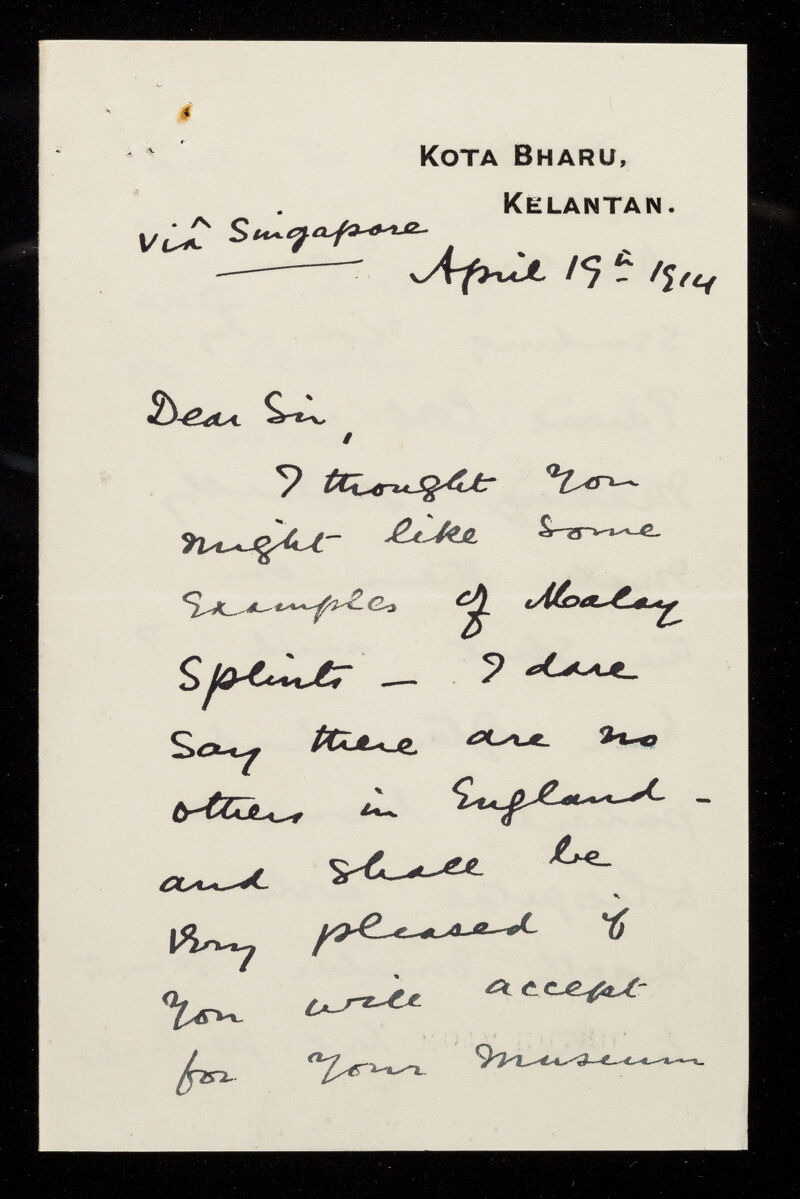 KOTA BHARU,
KELANTAN.
viâ Singapore
April 19th 1914
Dear Sir,
I thought you
might like some
Examples of Malay
Splints – I dare
say there are no
others in England –
and shall be
very pleased if
you will accept
for your museum